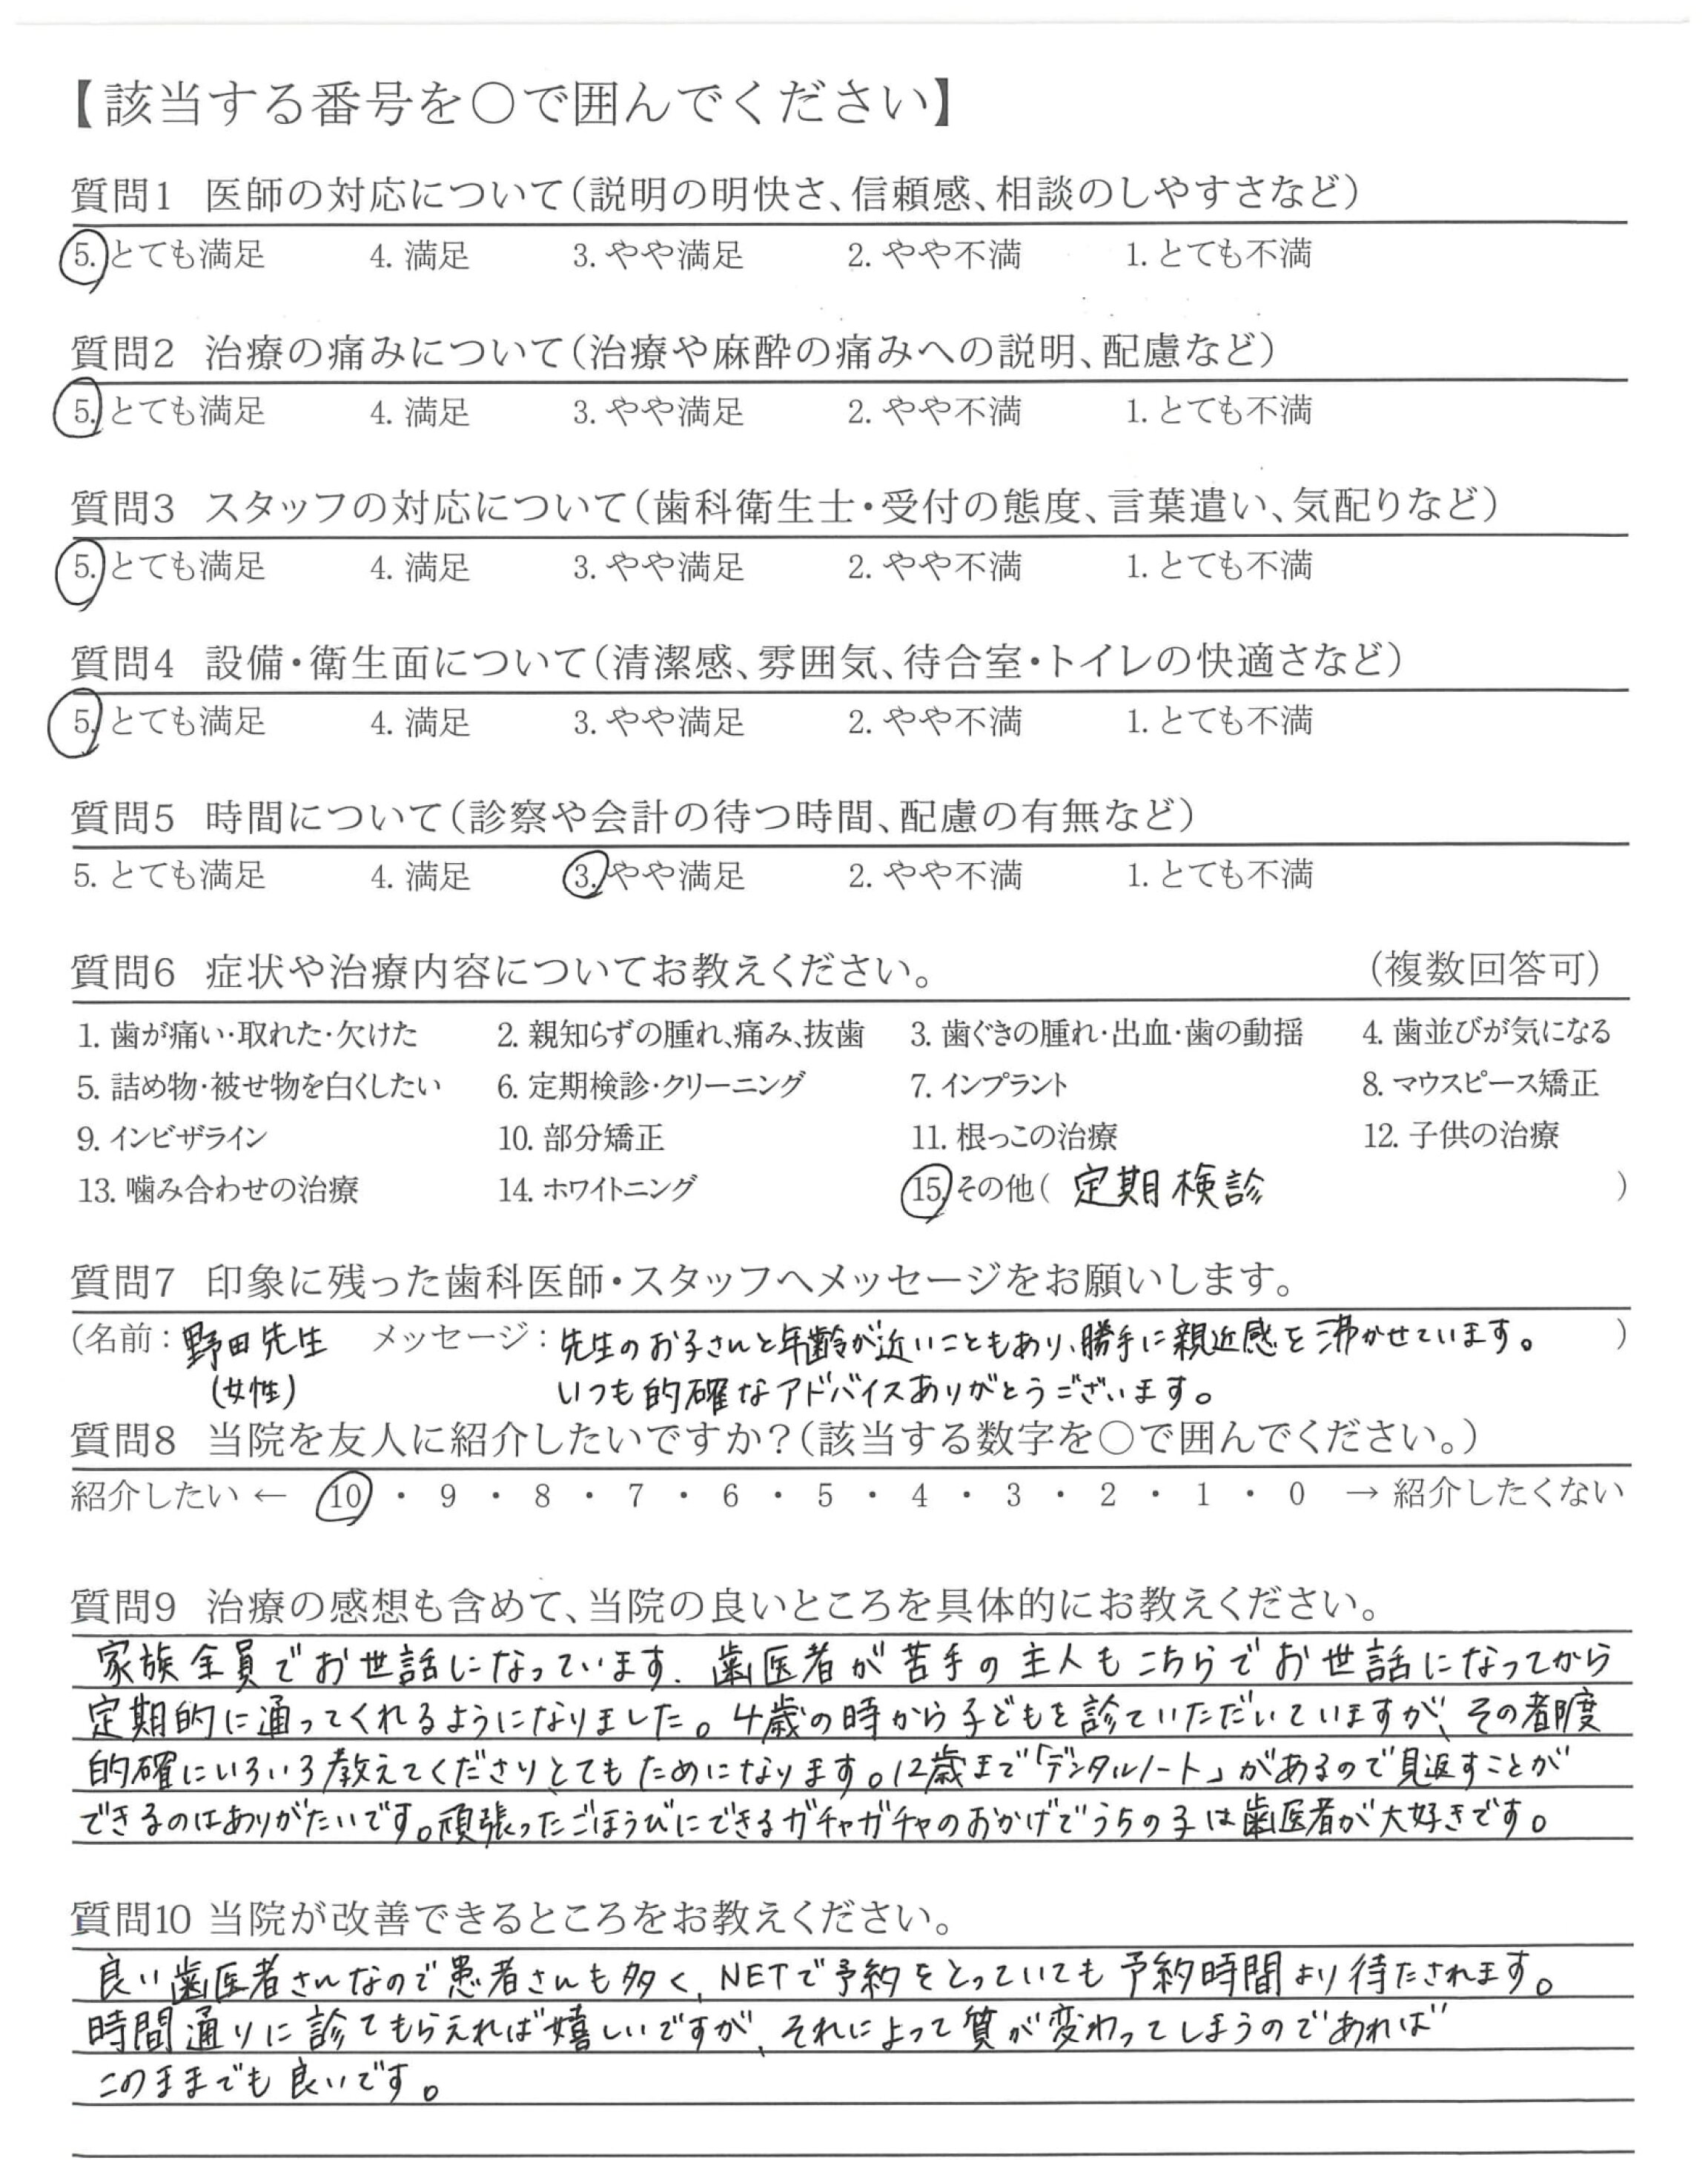 【該当する番号を〇で囲んでください】
質問1 医師の対応について(説明の明快さ、信頼感、相談のしやすさなど)
5. とても満足 4. 満足 3. やや満足 2. やや不満 1. とても不満
質問2 治療の痛みについて(治療や麻酔の痛みへの説明、配慮など)
5. とても満足 4. 満足 3. やや満足 2. やや不満 1. とても不満
質問3 スタッフの対応について(歯科衛生士・受付の態度、言葉遣い、気配りなど)
5. とても満足 4. 満足 3. やや満足 2. やや不満 1. とても不満
質問4 設備・衛生面について(清潔感、雰囲気、待合室・トイレの快適さなど)
5. とても満足 4. 満足 3. やや満足 2. やや不満 1. とても不満
質問5 時間について(診察や会計の待つ時間、配慮の有無など)
5. とても満足 4. 満足 3. やや満足 2. やや不満 1. とても不満
質問6 症状や治療内容についてお教えください。 (複数回答可)
1. 歯が痛い・取れた・欠けた 2. 親知らずの腫れ、痛み、抜歯 3. 歯ぐきの腫れ・出血・歯の動揺 4. 歯並びが気になる
5. 詰め物・被せ物を白くしたい 6. 定期検診・クリーニング 7. インプラント 8. マウスピース矯正
9. インビザライン 10. 部分矯正 11. 根っこの治療 12. 子供の治療
13. 噛み合わせの治療 14. ホワイトニング 15. その他( 定期検診 )
質問7 印象に残った歯科医師・スタッフへメッセージをお願いします。
(名前：野田先生 メッセージ：先生のお子さんと年齢が近いこともあり、勝手に親近感を沸かせています。 )
(女性) いつも的確なアドバイスありがとうございます。
質問8 当院を友人に紹介したいですか？(該当する数字を〇で囲んでください。)
紹介したい ← 10 ・ 9 ・ 8 ・ 7 ・ 6 ・ 5 ・ 4 ・ 3 ・ 2 ・ 1 ・ 0 → 紹介したくない
質問9 治療の感想も含めて、当院の良いところを具体的にお教えください。
家族全員でお世話になっています. 歯医者が苦手の主人もこちらでお世話になってから
定期的に通ってくれるようになりました。4歳の時から子どもを診ていただいていますが、その都度
的確にいろいろ教えてくださりとてもためになります。12歳まで「デンタルノート」があるので見返すことが
できるのはありがたいです。頑張ったごほうびにできるガチャガチャのおかげでうちの子は歯医者が大好きです。
質問10 当院が改善できるところをお教えください。
良い歯医者さんなので患者さんも多く、NETで予約をとっていても予約時間より待たされます。
時間通りに診てもらえれば嬉しいですが、それによって質が変わってしまうのであれば
このままでも良いです。